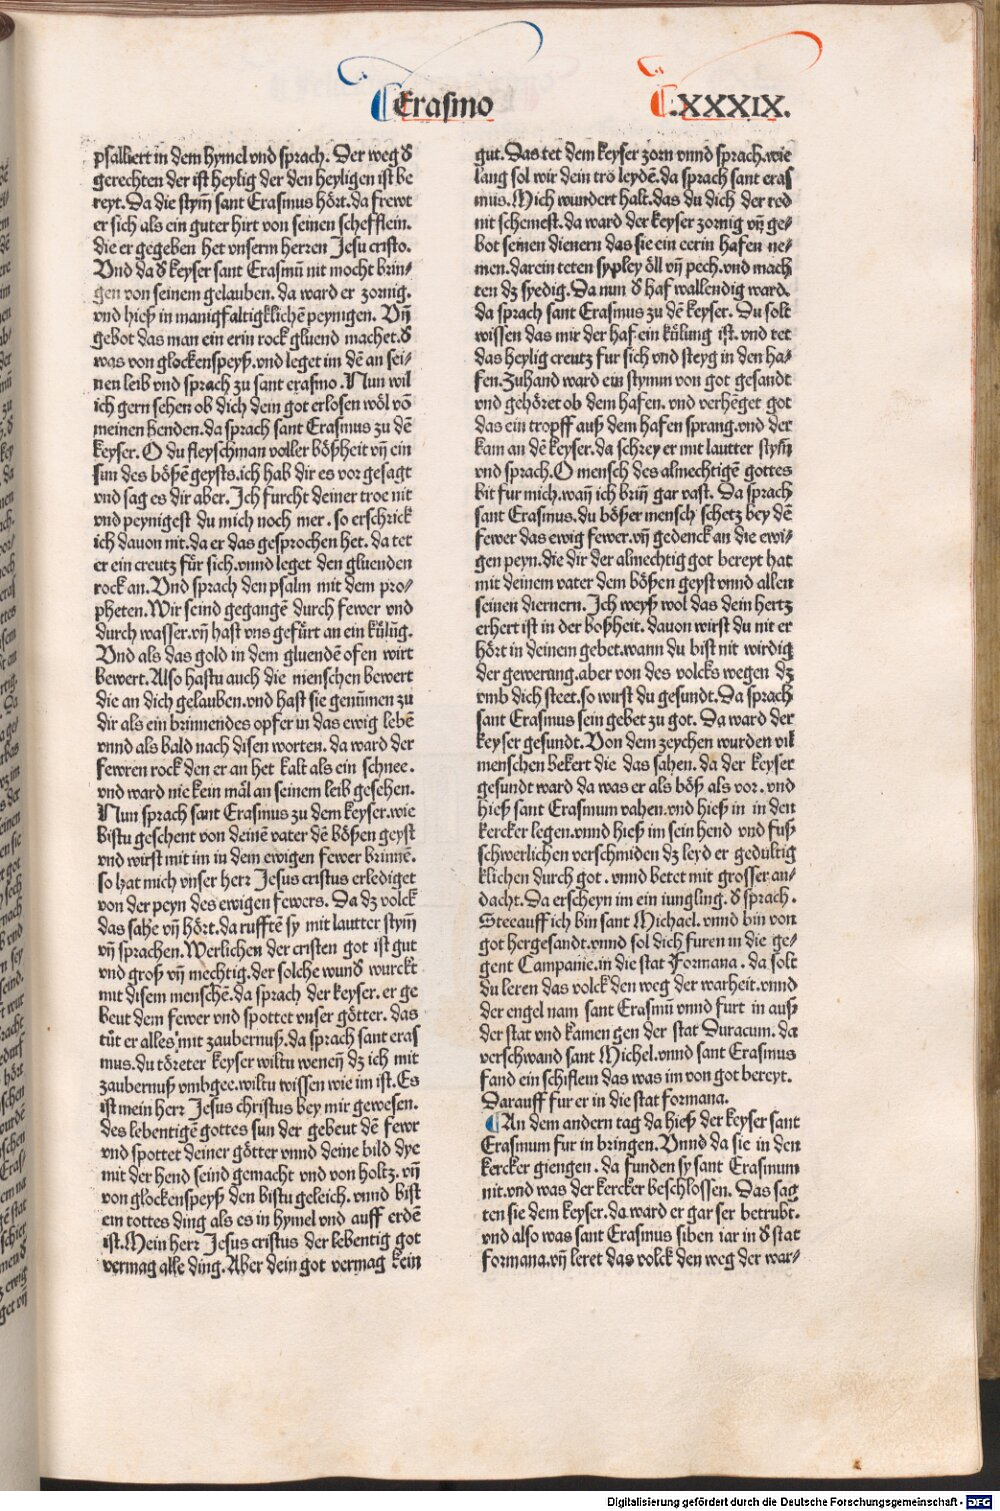 Erasmo
.XXXIX.
psalliert in dem hymel vnd sprach. Der weg d̕
gerechten der ist heylig der den heyligen ist be
reyt. Da die stym̄ sant Erasmus hört. da frewt
er sich als ein guter hirt von seinen schefflein.
die er gegeben het vnserm herren Jesu cristo.
Vnd da d̕ keyser sant Erasmū nit mocht brin⸗
gen von seinem gelauben. da ward er zornig.
vnd hieß in manigfaltigklichē peynigen. Vn̄
gebot das man ein erin rock gluend machet. d̕
was von glockenspeyß. vnd leget im dē an sei⸗
nen leib vnd sprach zu sant erasmo. Nun wil
ich gern sehen ob dich dein got erlosen wöl vō
meinen henden. da sprach sant Erasmus zu dē
keyser. O du fleyschman voller bößheit vn̄ ein
sun des bößē geysts. ich hab dir es vor gesagt
vnd sag es dir aber. Ich furcht deiner troe nit
vnd peynigest du mich noch mer. so erschrick
ich dauon nit. da er das gesprochen het. da tet
er ein creutz für sich. vnnd leget den gluenden
rock an. Vnd sprach den psalm mit dem pro⸗
pheten. Wir seind gegangē durch fewer vnd
durch wasser. vn̄ hast vns gefürt an ein külūg.
Vnd als das gold in dem gluendē ofen wirt
bewert. Also hastu auch die menschen bewert
die an dich gelauben. vnd hast sie genūmen zu
dir als ein brinnendes opfer in das ewig lebē
vnnd als bald nach disen worten. da ward der
fewren rock den er an het kalt als ein schnee.
vnd ward nie kein mal an seinem leib gesehen.
Nun sprach sant Erasmus zu dem keyser. wie
bistu geschent von deinē vater dē bößen geyst
vnd wirst mit im in dem ewigen fewer brinnē.
so hat mich vnser herr Jesus cristus erlediget
von der peyn des ewigen fewers. Da dz volck
das sahe vn̄ hört. da rufftē sy mit lautter stym̄
vn̄ sprachen. Werlichen der cristen got ist gut
vnd groß vn̄ mechtig. der solche wund̕ wurckt
mit disem menschē. da sprach der keyser. er ge
beut dem fewer vnd spottet vnser götter. das
tůt er alles mit zaubernuß. da sprach sant eras
mus. du töreter keyser wiltu wenen̄ dz ich mit
zaubernuß vmbgee. wiltu wissen wie im ist. Es
ist mein herr Jesus christus bey mir gewesen.
des lebentigē gottes sun der gebeut dē fewr
vnd spottet deiner götter vnnd deine bild dye
mit der hend seind gemacht vnd von holtz. vn̄
von glockenspeyß den bistu geleich. vnnd bist
ein tottes ding als es in hymel vnd auff erdē
ist. Mein herr Jesus cristus der lebentig got
vermag alle ding. Aber dein got vermag kein
gut. Das tet dem keyser zorn vnnd sprach. wie
lang sol wir dein tro leydē. da sprach sant eras
mus. Mich wundert halt. das du dich der red
nit schemest. da ward der keyser zornig vn̄ ge⸗
bot seinen dienern das sie ein eerin hafen ne⸗
men. darein teten sy pley öll vn̄ pech. vnd mach
ten dz syedig. Da nun d̕ haf wallendig ward.
da sprach sant Erasmus zu dē keyser. Du solt
wissen das mir der haf ein külung ist. vnd tet
das heylig creutz fur sich vnd steyg in den ha⸗
fen. Zuhand ward ein stymm von got gesandt
vnd gehöret ob dem hafen. vnd verhēget got
das ein tropff auß dem hafen sprang. vnd der
kam an dē keyser. da schrey er mit lautter stym̄
vnd sprach. O mensch des almechtigē gottes
bit fur mich. wan̄ ich brin̄ gar vast. Da sprach
sant Erasmus. du bößer mensch schetz bey dē
fewer das ewig fewer. vn̄ gedenck an die ewi⸗
gen peyn. die dir der almechtig got bereyt hat
mit deinem vater dem bößen geyst vnnd allen
seinen diernern. Ich weyß wol das dein hertz
erhert ist in der boßheit. dauon wirst du nit er
hört in deinem gebet. wann du bist nit wirdig
der gewerung. aber von des volcks wegen dz
vmb dich steet. so wurst du gesundt. Da sprach
sant Erasmus sein gebet zu got. Da ward der
keyser gesundt. Von dem zeychen wurden vil
menschen bekert die das sahen. da der keyser
gesundt ward da was er als böß als vor. vnd
hieß sant Erasmum vahen. vnd hieß in in den
kercker legen. vnnd hieß im sein hend vnd fuß
schwerlichen verschmiden dz leyd er gedultig
klichen durch got. vnnd betet mit grosser an⸗
dacht. Da erscheyn im ein iungling. d̕ sprach.
Stee auff ich bin sant Michael. vnnd bin von
got hergesandt. vnnd sol dich furen in die ge⸗
gent Campanie. in die stat Formana. da solt
du leren das volck den weg der warheit. vnnd
der engel nam sant Erasmū vnnd furt in auß
der stat vnd kamen gen der stat Duracum. da
verschwand sant Michel. vnnd sant Erasmus
fand ein schiflein das was im von got bereyt.
Darauff fur er in die stat formana.
An dem andern tag da hieß der keyser sant
Erasmum fur in bringen. Vnnd da sie in den
kercker giengen. da funden sy sant Erasmum
nit. vnd was der kercker beschlossen. Das sag
ten sie dem keyser. da ward er gar ser betrubt.
vnd also was sant Erasmus siben iar in d̕ stat
formana. vn̄ leret das volck den weg der war⸗
Digitalisierung gefördert durch die Deutsche Forschungsgemeinschaft - DFG